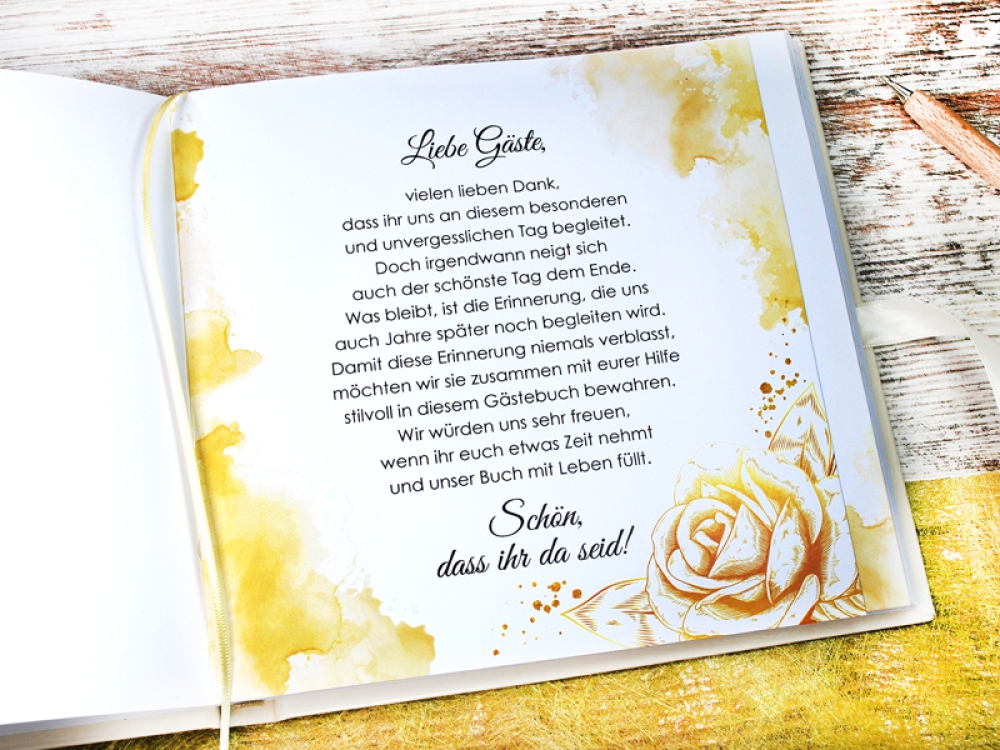 Liebe Gäste,
vielen lieben Dank,
dass ihr uns an diesem besonderen
und unvergesslichen Tag begleitet.
Doch irgendwann neigt sich
auch der schönste Tag dem Ende.
Was bleibt, ist die Erinnerung, die uns
auch Jahre später noch begleiten wird.
Damit diese Erinnerung niemals verblasst,
möchten wir sie zusammen mit eurer Hilfe
stilvoll in diesem Gästebuch bewahren.
Wir würden uns sehr freuen,
wenn ihr euch etwas Zeit nehmt
und unser Buch mit Leben füllt.
Schön,
dass ihr da seid!